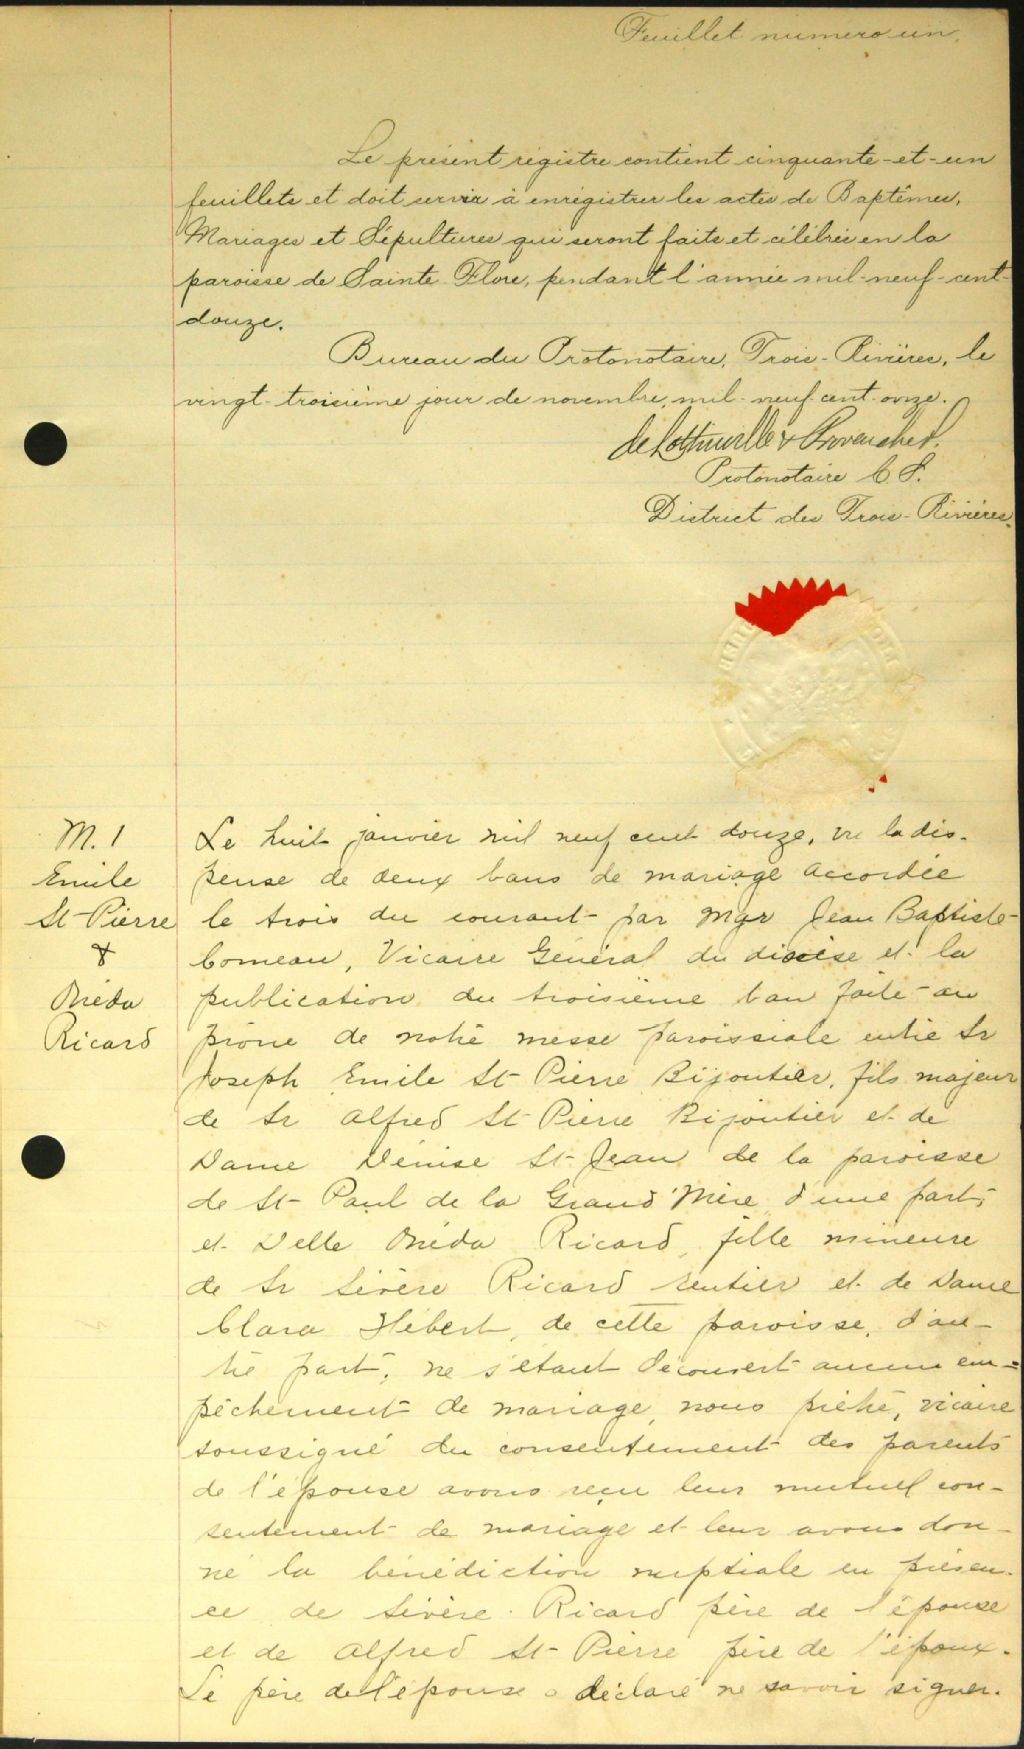 Feuillet numero un.
Le présent régistre contient cinquante-et-un
feuillets et doit servir à enrégistrer les actes de Baptêmes,
Mariages et Sépultures qui seront faits et célébrés en la
paroisse de Sainte Flore, pendant l'année mil-neuf-cent-
douze.
Bureau du Protonotaire, Trois-Rivières, le
vingt-troisième jour de novembre, mil-neuf-cent-onze.
Protonotaire C. S.
District des Trois-Rivières.
M. 1
Emile
St-Pierre
&
Onéda
Ricard
Le huit janvier mil neuf cent douze, vu la dis-
pense de deux bans de mariage accordée
le trois du courant par Mgr Jean Baptiste
Comeau, Vicaire Général du diocèse et la
publication du troisième ban faite au
prône de notre messe paroissiale entre Sr
Joseph Emile St-Pierre Bijoutier, fils majeur
de Sr Alfred St Pierre Bijoutier et de
Dame Dénise St-Jean de la paroisse
de St-Paul de la Grand'Mère d'une part;
et Delle Onéda Ricard, fille mineure
de Sr Sévère Ricard rentier et de Dame
Clara Hébert, de cette paroisse, d'au-
tre part; ne s'étant découvert aucun em-
pêchement de mariage, nous prêtre, vicaire
soussigné du consentement des parents
de l'épouse avons reçu leur mutuel con-
sentement de mariage et leur avons don-
né la bénédiction nuptiale en présen-
ce de Sévère Ricard père de l'épouse
et de Alfred St-Pierre père de l'époux.
Le père de l'épouse a déclaré ne savoir signer.